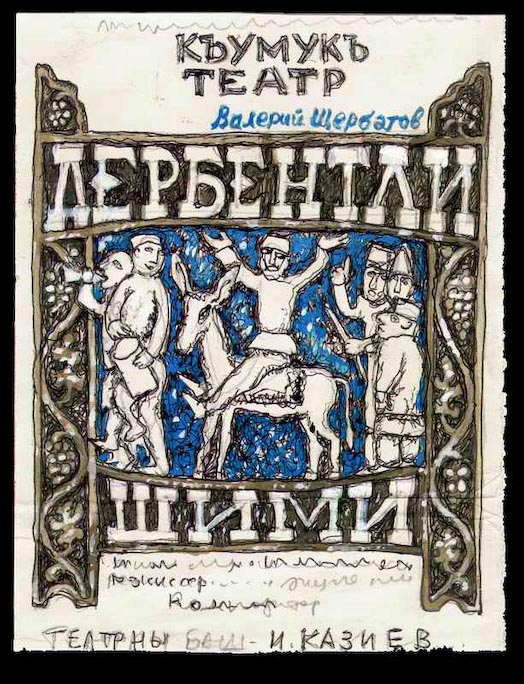 КЪУМУКЪ
ТЕАТР
Валерий Щербатов
ДЕРБЕНТЛИ
ШИМИ
Режиссер
ТЕАТРНЫ БАШ - И. КАЗИЕВ